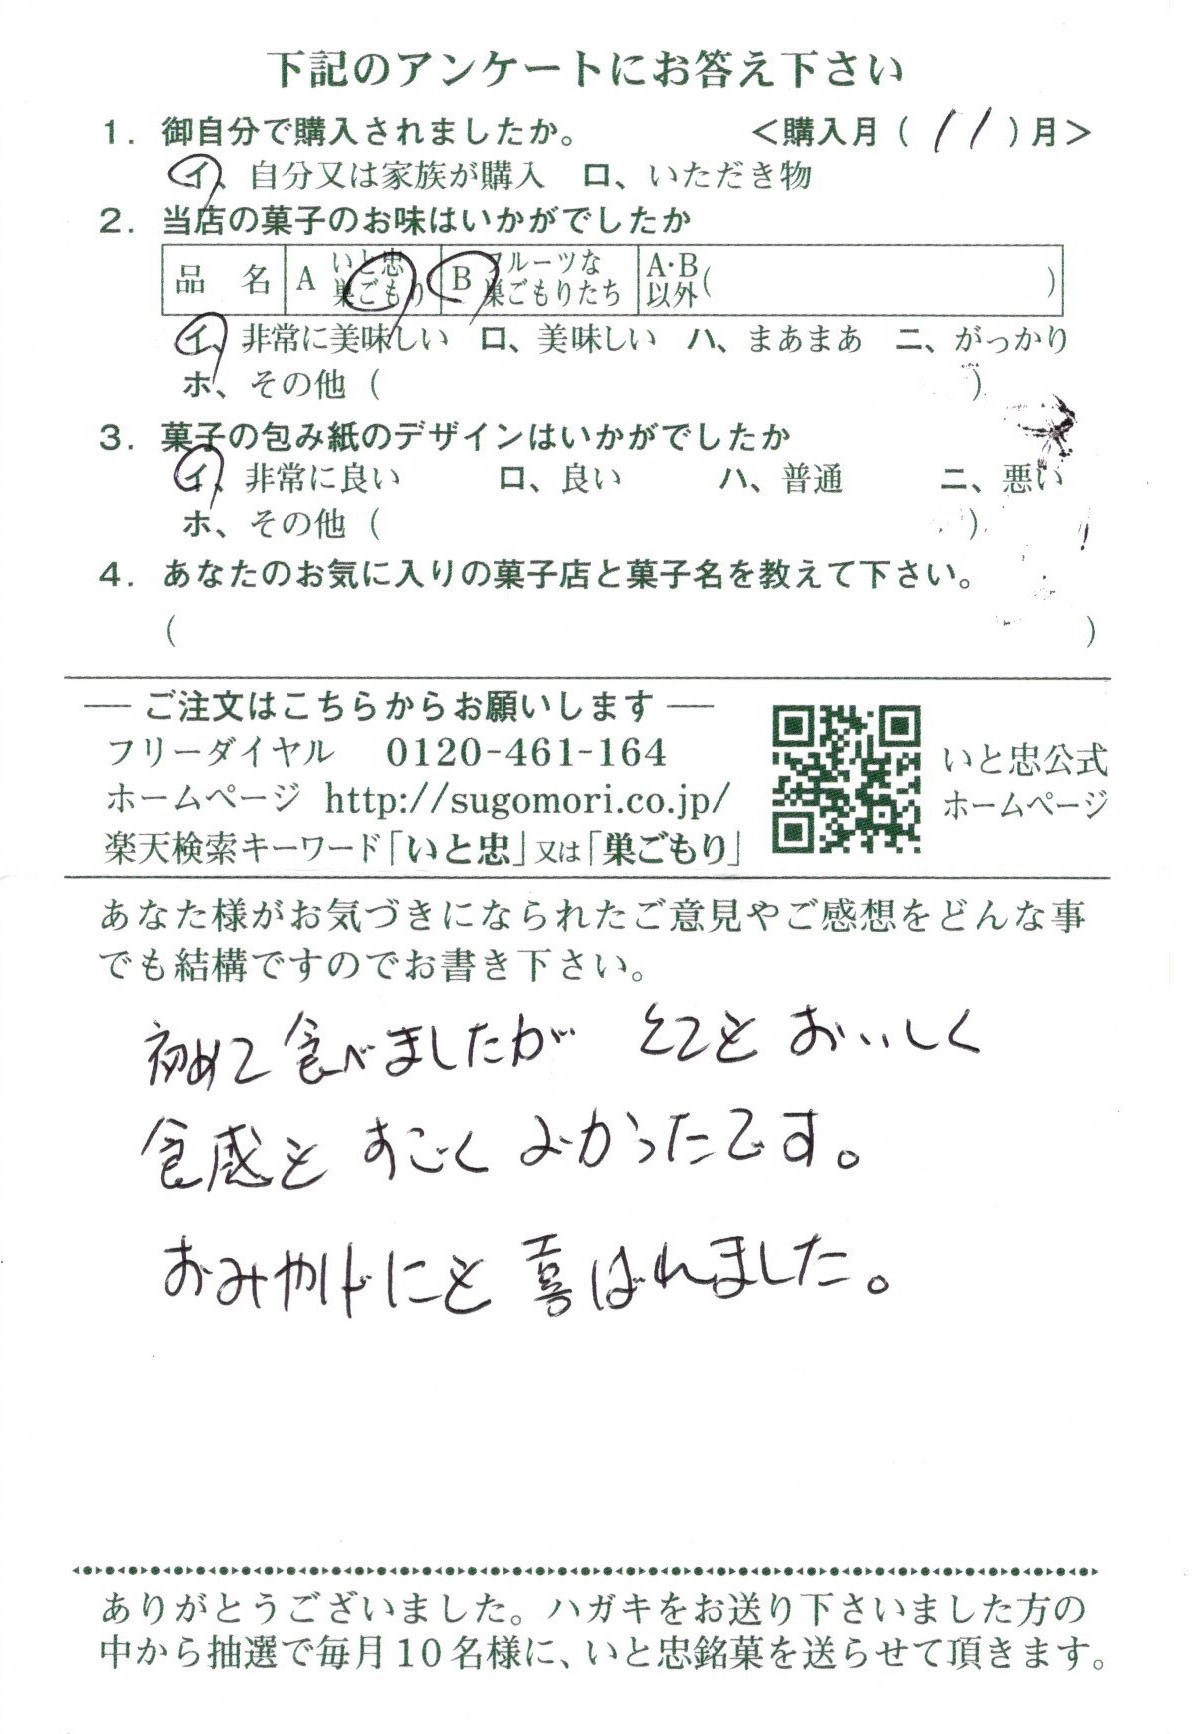 下記のアンケートにお答え下さい
1. 御自分で購入されましたか。 ＜購入月（11）月＞
イ、自分又は家族が購入 ロ、いただき物
2. 当店の菓子のお味はいかがでしたか
品 名 A いと忠巣ごもり B フルーツな巣ごもりたち A・B以外( )
イ、非常に美味しい ロ、美味しい ハ、まあまあ ニ、がっかり
ホ、その他 ( )
3. 菓子の包み紙のデザインはいかがでしたか
イ、非常に良い ロ、良い ハ、普通 ニ、悪い
ホ、その他 ( )
4. あなたのお気に入りの菓子店と菓子名を教えて下さい。
( )
― ご注文はこちらからお願いします ―
フリーダイヤル 0120-461-164
ホームページ http://sugomori.co.jp/
楽天検索キーワード「いと忠」又は「巣ごもり」
いと忠公式
ホームページ
あなた様がお気づきになられたご意見やご感想をどんな事
でも結構ですのでお書き下さい。
初めて食べましたが とても おいしく
食感も すごく よかったです。
おみやげにも 喜ばれました。
ありがとうございました。ハガキをお送り下さいました方の
中から抽選で毎月10名様に、いと忠銘菓を送らせて頂きます。